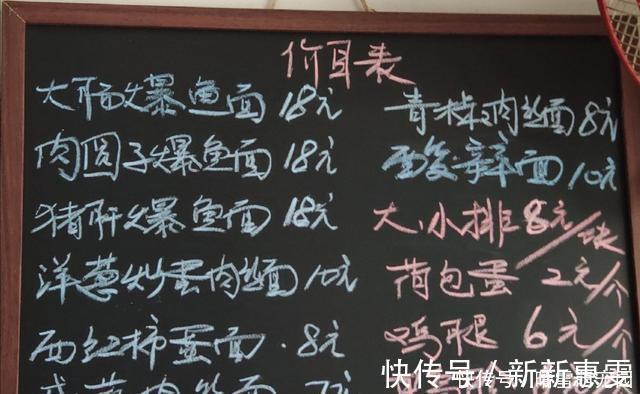 价目表
大肠爆鱼面 18元
肉圆子爆鱼面 18元
猪肝爆鱼面 18元
洋葱炒蛋肉丝面 10元
西红柿蛋面 8元
肉丝面 7元
青椒肉丝面 8元
酸辣面 10元
大、小排 8元/块
荷包蛋 2元/个
鸡腿 6元/个
快传号/新新惠霖
快传号/